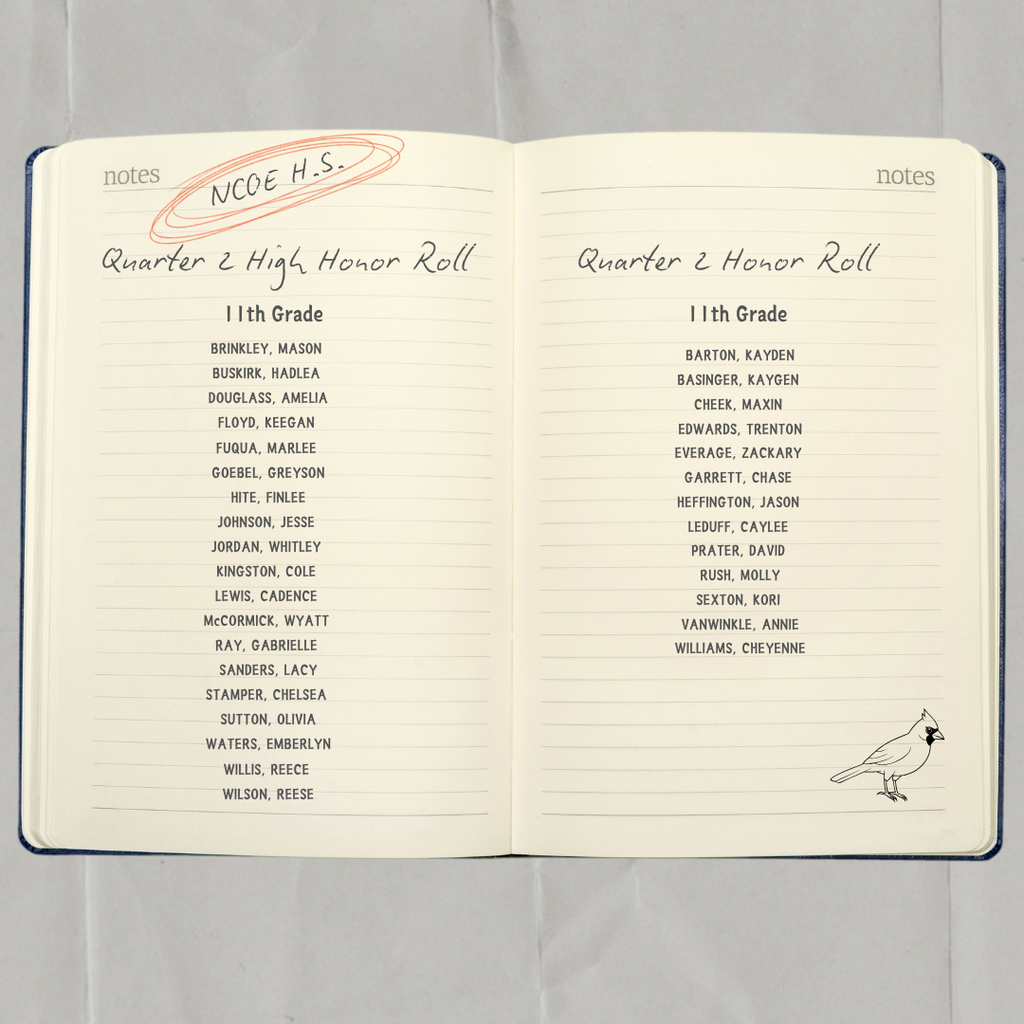 notes
NCOE H.S.
Quarter 2 High Honor Roll
11th Grade
BRINKLEY, MASON
BUSKIRK, HADLEA
DOUGLASS, AMELIA
FLOYD, KEEGAN
FUQUA, MARLEE
GOEBEL, GREYSON
HITE, FINLEE
JOHNSON, JESSE
JORDAN, WHITLEY
KINGSTON, COLE
LEWIS, CADENCE
McCORMICK, WYATT
RAY, GABRIELLE
SANDERS, LACY
STAMPER, CHELSEA
SUTTON, OLIVIA
WATERS, EMBERLYN
WILLIS, REECE
WILSON, REESE
notes
Quarter 2 Honor Roll
11th Grade
BARTON, KAYDEN
BASINGER, KAYGEN
CHEEK, MAXIN
EDWARDS, TRENTON
EVERAGE, ZACKARY
GARRETT, CHASE
HEFFINGTON, JASON
LEDUFF, CAYLEE
PRATER, DAVID
RUSH, MOLLY
SEXTON, KORI
VANWINKLE, ANNIE
WILLIAMS, CHEYENNE